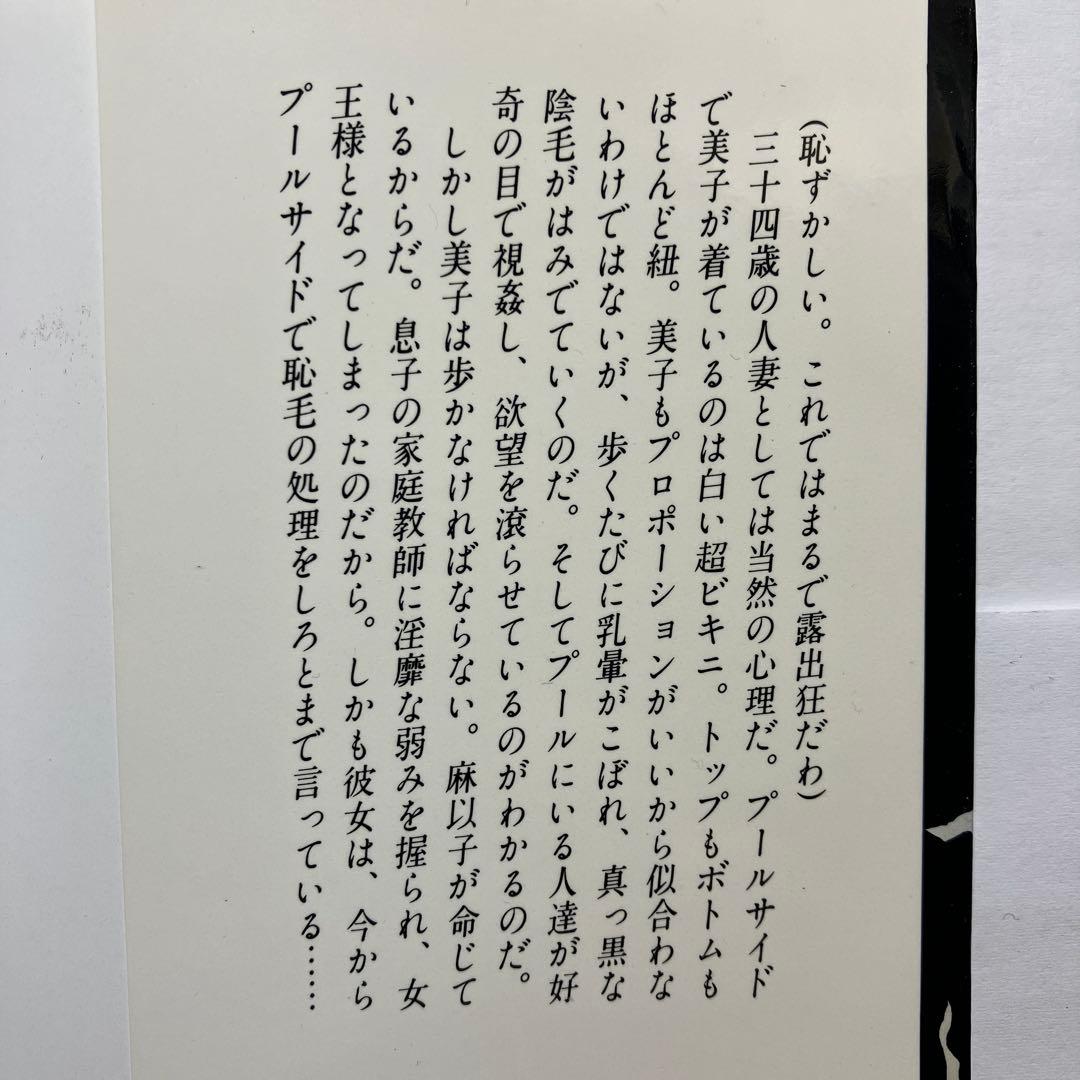 (恥ずかしい。これではまるで露出狂だわ)
三十四歳の人妻としては当然の心理だ。プールサイド
で美子が着ているのは白い超ビキニ。トップもボトムも
ほとんど紐。美子もプロポーションがいいから似合わな
いわけではないが、歩くたびに乳暈がこぼれ、真っ黒な
陰毛がはみでていくのだ。そしてプールにいる人達が好
奇の目で視姦し、欲望を滾らせているのがわかるのだ。
しかし美子は歩かなければならない。麻以子が命じて
いるからだ。息子の家庭教師に淫靡な弱みを握られ、女
王様となってしまったのだから。しかも彼女は、今から
プールサイドで恥毛の処理をしろとまで言っている……